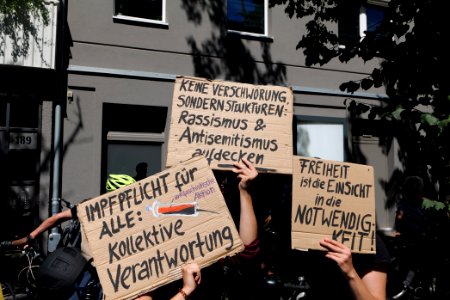 KEINE VERSCHWÖRUNG,
SONDERN STRUKTUREN:
RASSISMUS &
ANTISEMITISMUS
aufdecken
IMPFPFLICHT für
ALLE:
Kollektive
Verantwortung
FREIHEIT
ist die EINSICHT
in die
NOTWENDIG
KEIT!
189